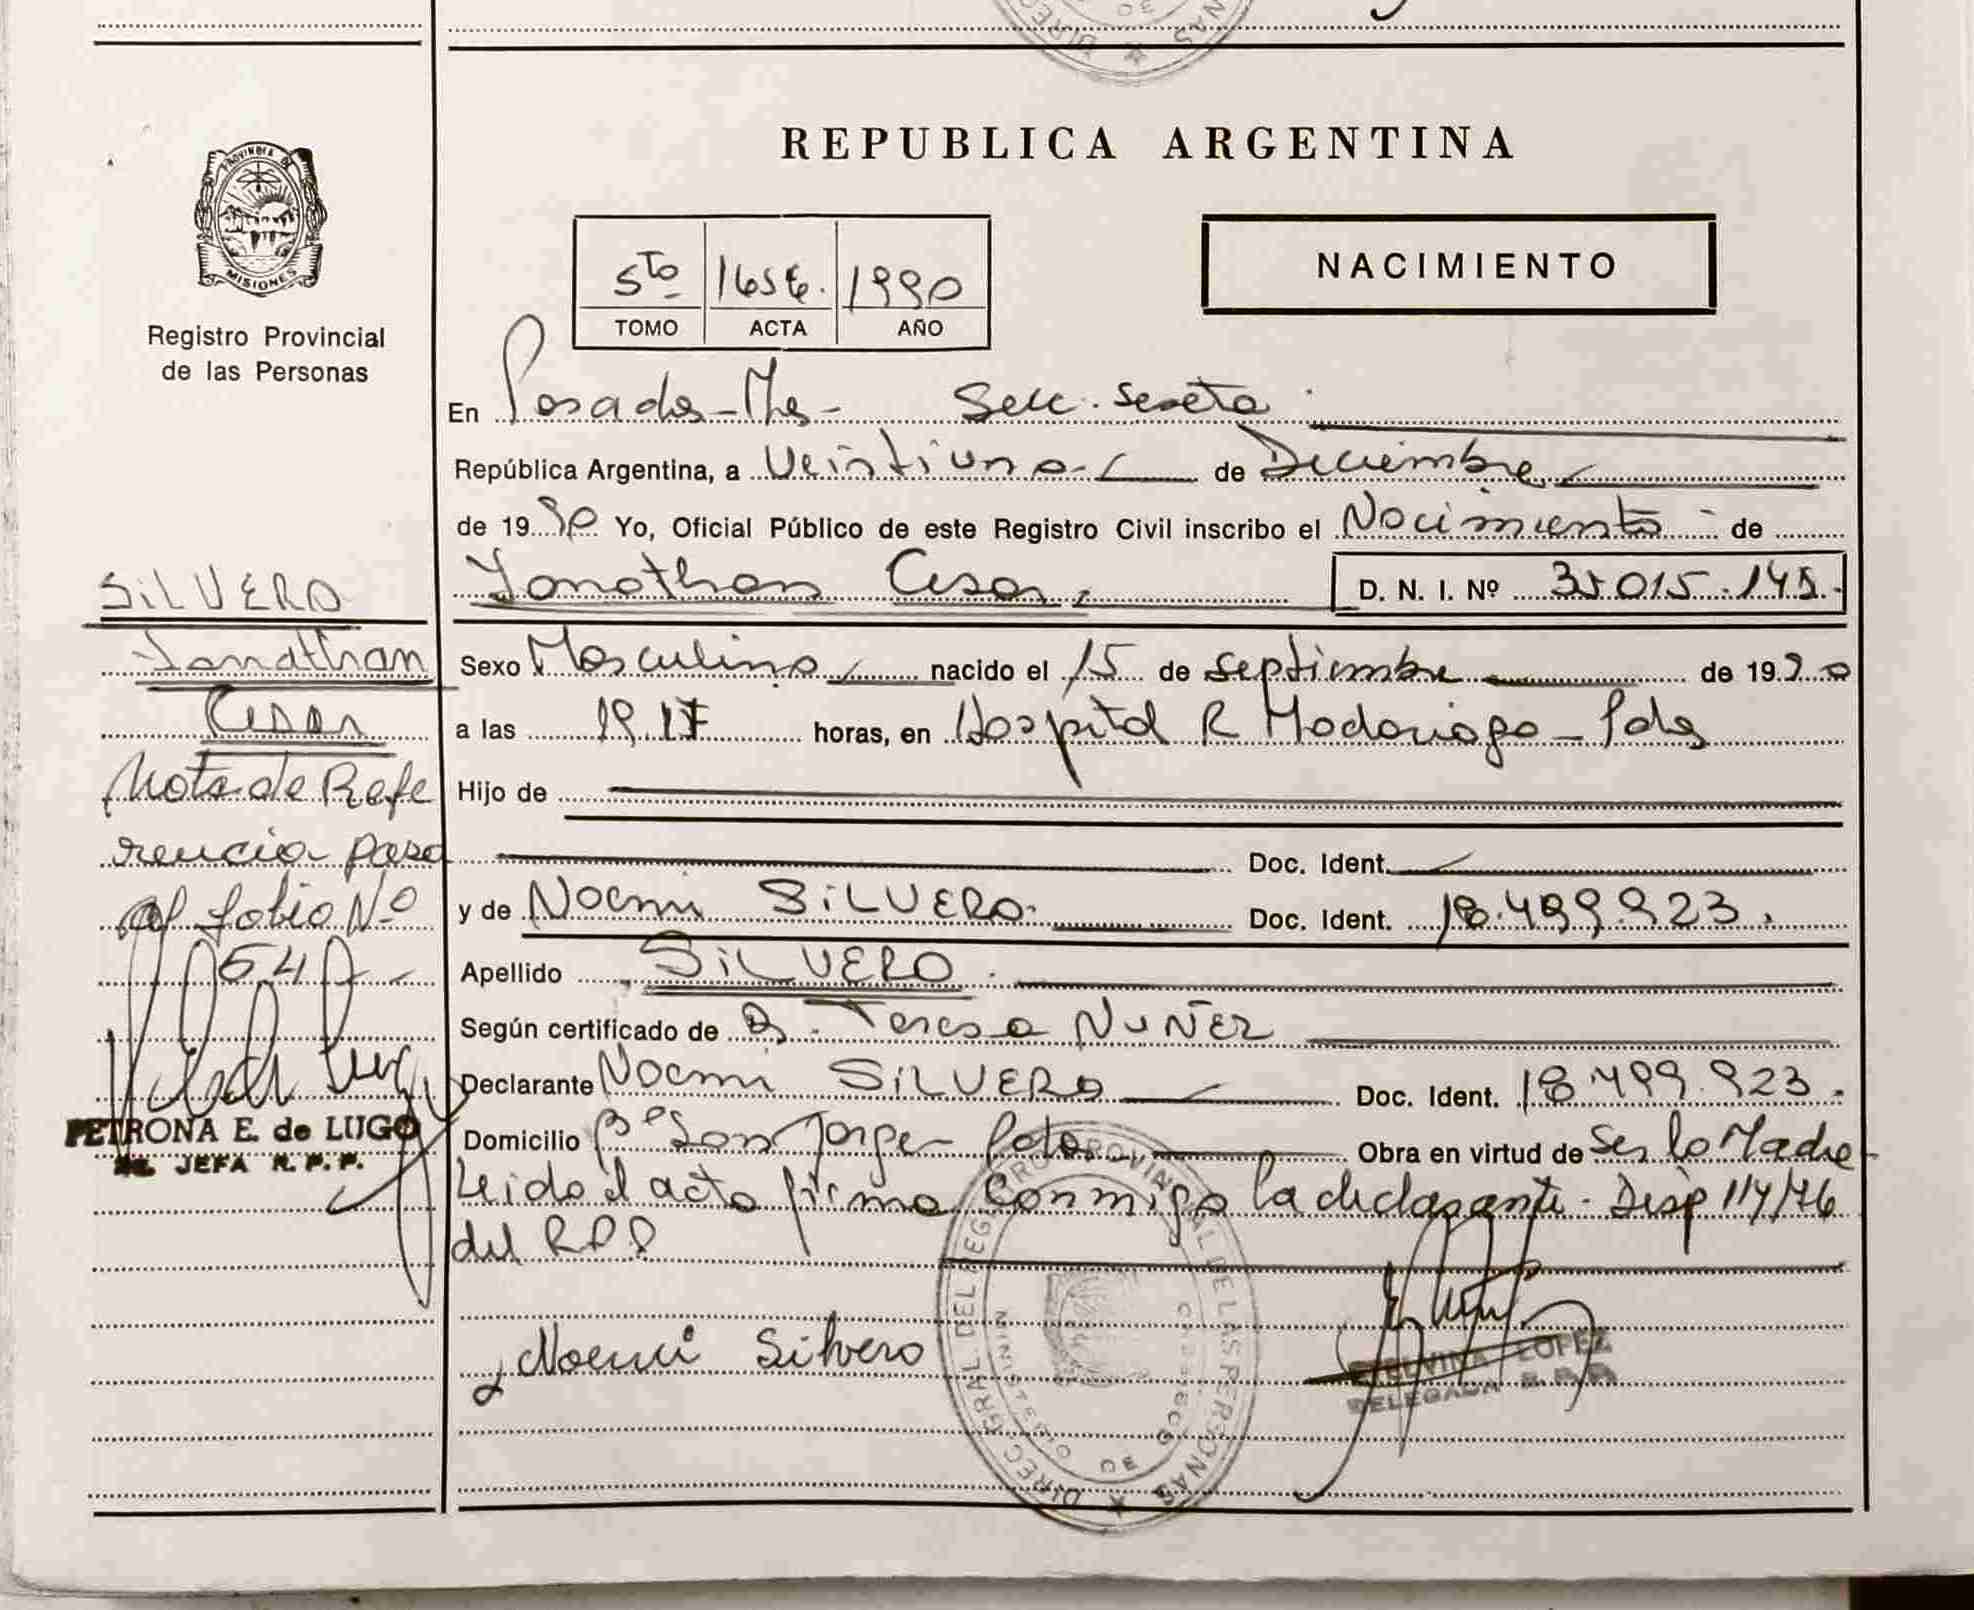 REPUBLICA ARGENTINA
PROVINCIA DE
MISIONES
Registro Provincial
de las Personas
NACIMIENTO
5to 1990
TOMO ACTA AÑO
En Posadas-Mnes- Secc. sexta
República Argentina, a Veintiuno de Diciembre
de 1990 Yo, Oficial Público de este Registro Civil inscribo el Nacimiento de
Jonathan Cesar D. N. I. Nº 35.015.145
Sexo Masculino nacido el 15 de septiembre de 1990
a las 19.17 horas, en Hospital R Madariaga - Pdas
Hijo de
Doc. Ident.
y de Noemi SILVERO Doc. Ident. 18.499.923.
Apellido SILVERO
Según certificado de Teresa NUÑEZ
Declarante Noemi SILVERO Doc. Ident. 18.499.923.
Domicilio Bº San Jorge Obra en virtud de Ser la Madre
Leido el acta firma conmigo la declarante - Disp 114/76
del RPP
Noemi Silvero
ETELVINA LOPEZ
DELEGADA R.P.P.
DIREC. GRAL. DEL REGISTRO PROVINCIAL DE LAS PERSONAS
MINISTERIO DE GOBIERNO
SILVERO
Jonathan
Cesar
Nota de Refe
rencia pasa
al folio Nº
54
PETRONA E. de LUGO
JEFA R.P.P.